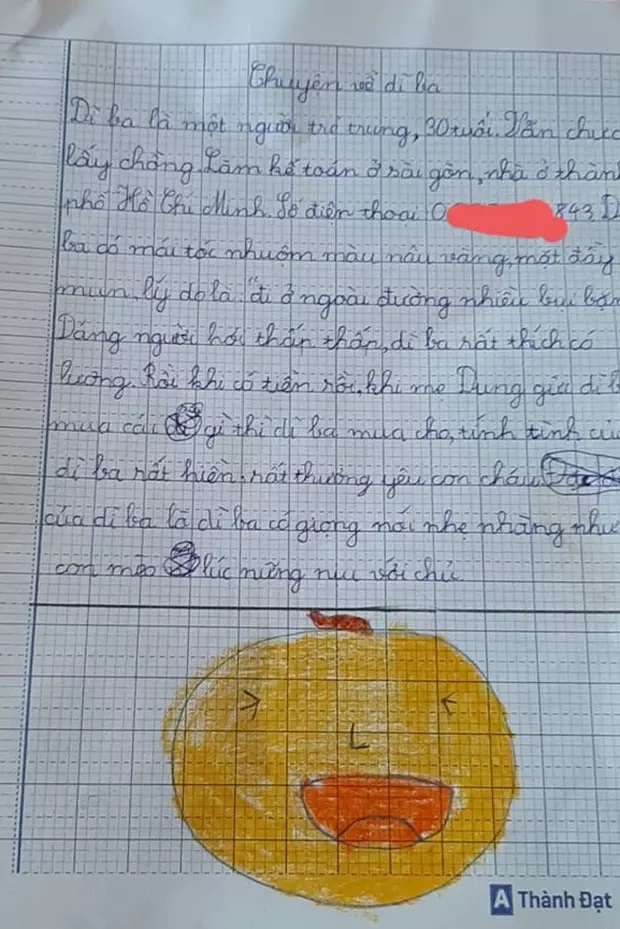 Chuyện về dì ba
Dì ba là một người trẻ trung, 30 tuổi. Vẫn chưa
lấy chồng. Làm kế toán ở sài gòn, nhà ở thàn
phố Hồ Chí Minh. Số điện thoại 0 843 D
ba có mái tóc nhuộm màu nâu vàng, mặt đầy
mụn, lý do là "đi ở ngoài đường nhiều bụi bặm
Dáng người hơi thấn thấn, dì ba rất thích có
lương. Rồi khi có tiền rồi, khi mẹ Dung giục dì b
mua cái gì thì dì ba mua cho, tính tình củ
dì ba rất hiền, rất thương yêu con cháu
của dì ba là dì ba có giọng nói nhẹ nhàng như
con mèo lúc nũng nịu với chủ.
A Thành Đạt